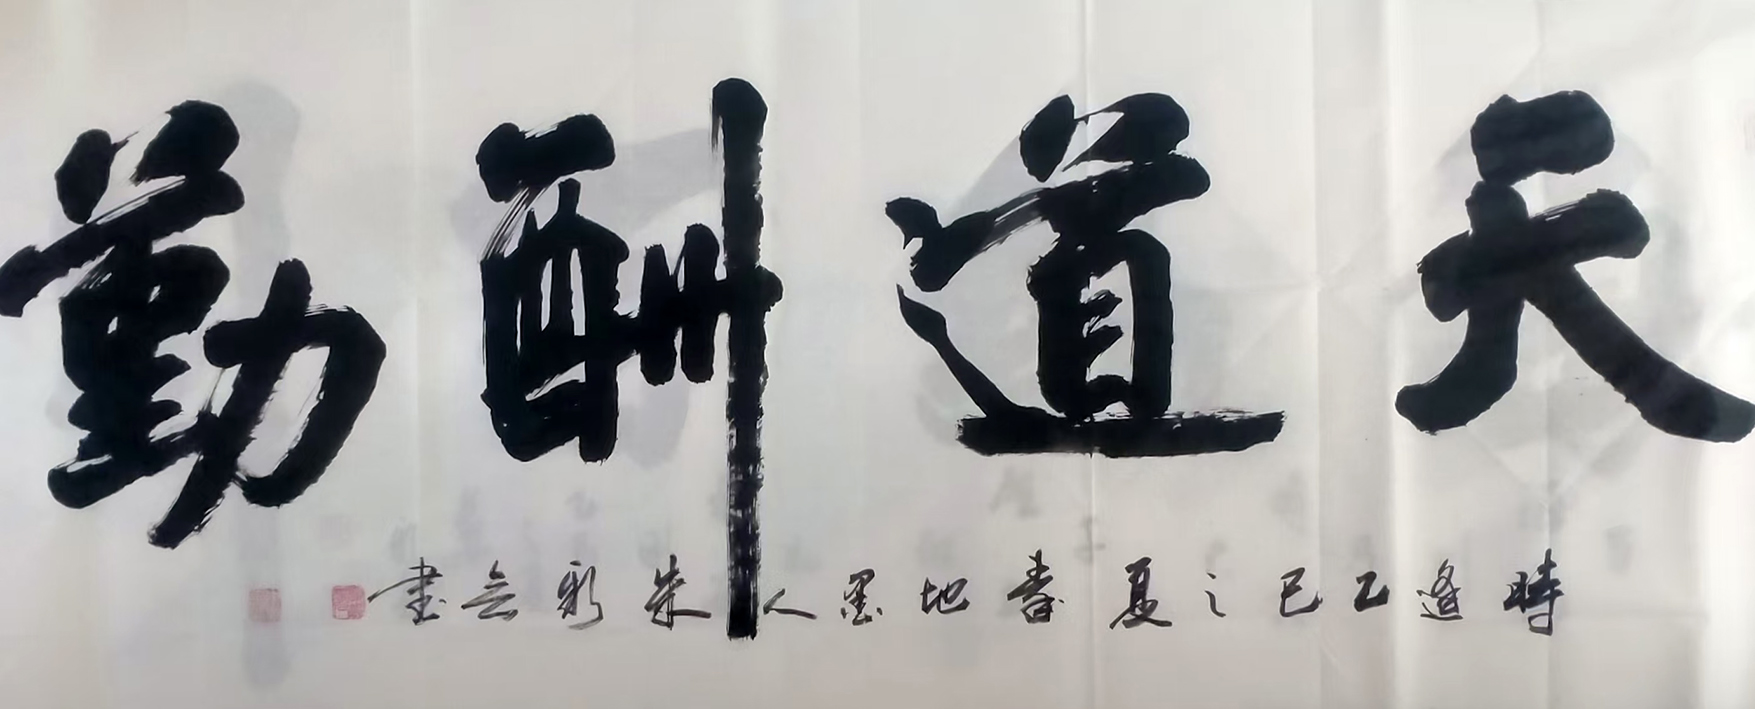 天道酬勤
時逢乙巳之夏春地墨人朱新云書